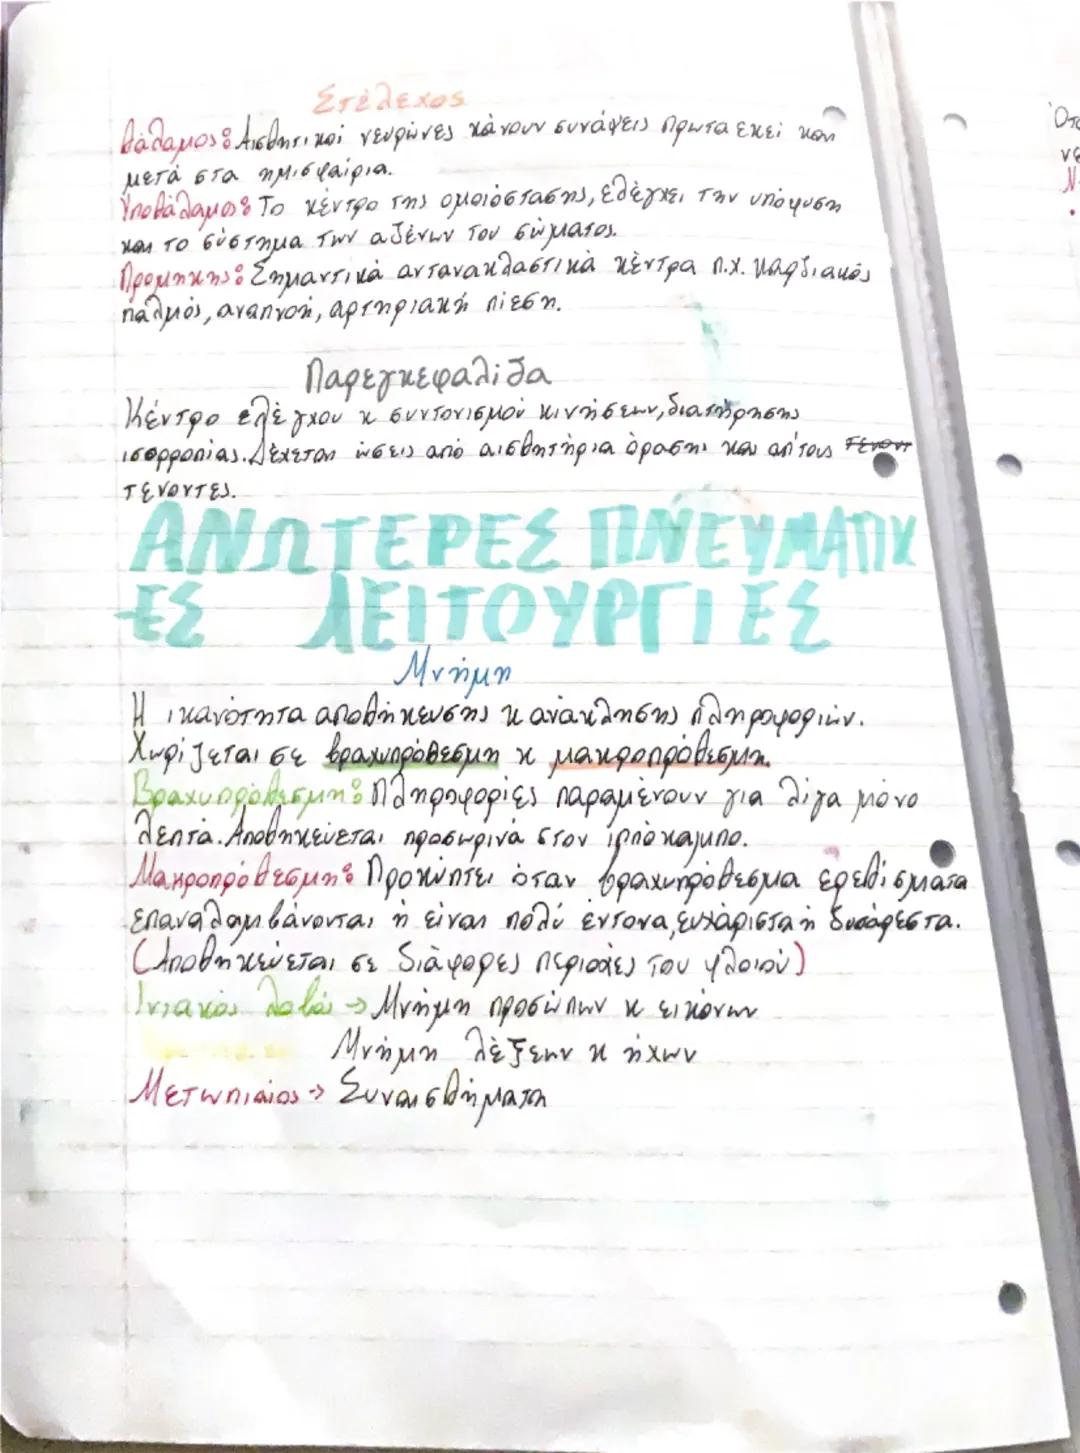 Στέλεχος
Θάλαμος: Αισθητικοί νευρώνες κάνουν συνάψεις πρωτα εκεί και
μετά στα ημισφαίρια.
Υποθάλαμος: Το κέντρο της ομοιόστασης, ελέγχει την υπόφυση
και το σύστημα των αξένων του σώματος.
Προμήκης: Σημαντικά αντανακλαστικά κέντρα π.χ. καρδιακός
παλμός, αναπνοή, αρτηριακή πίεση.
Παρεγκεφαλίδα
Κέντρο ελέγχου κ συντονισμού κινήσεων, διατήρησης
ισορροπίας. Δέχεται ώσεις από αισθητήρια όρασης και απ'τους
τένοντες.
ΑΝΩΤΕΡΕΣ ΠΝΕΥΜΑΤΙΚ
-ΕΣ ΛΕΙΤΟΥΡΓΙΕΣ
Μνήμη
Η ικανότητα αποθήκευσης κ ανάκλησης πληροφοριών.
Χωρίζεται σε βραχυπρόθεσμη κ μακροπρόθεσμη.
Βραχυπρόθεσμη: Πληροφορίες παραμένουν για λίγα μόνο
λεπτά. Αποθηκεύεται προσωρινά στον ιππόκαμπο.
Μακροπρόθεσμη: Προκύπτει όταν βραχυπρόθεσμα ερεθίσματα
επαναλαμβάνονται ή είναι πολύ έντονα, ευχάριστα ή δυσάρεστα.
(Αποθηκεύεται σε διάφορες περιοχές του φλοιού)
Ινιακός λοβός → Μνήμη προσώπων κ εικόνων
Μνήμη λέξεων κ ήχων
Μετωπιαίος → Συναισθήματα